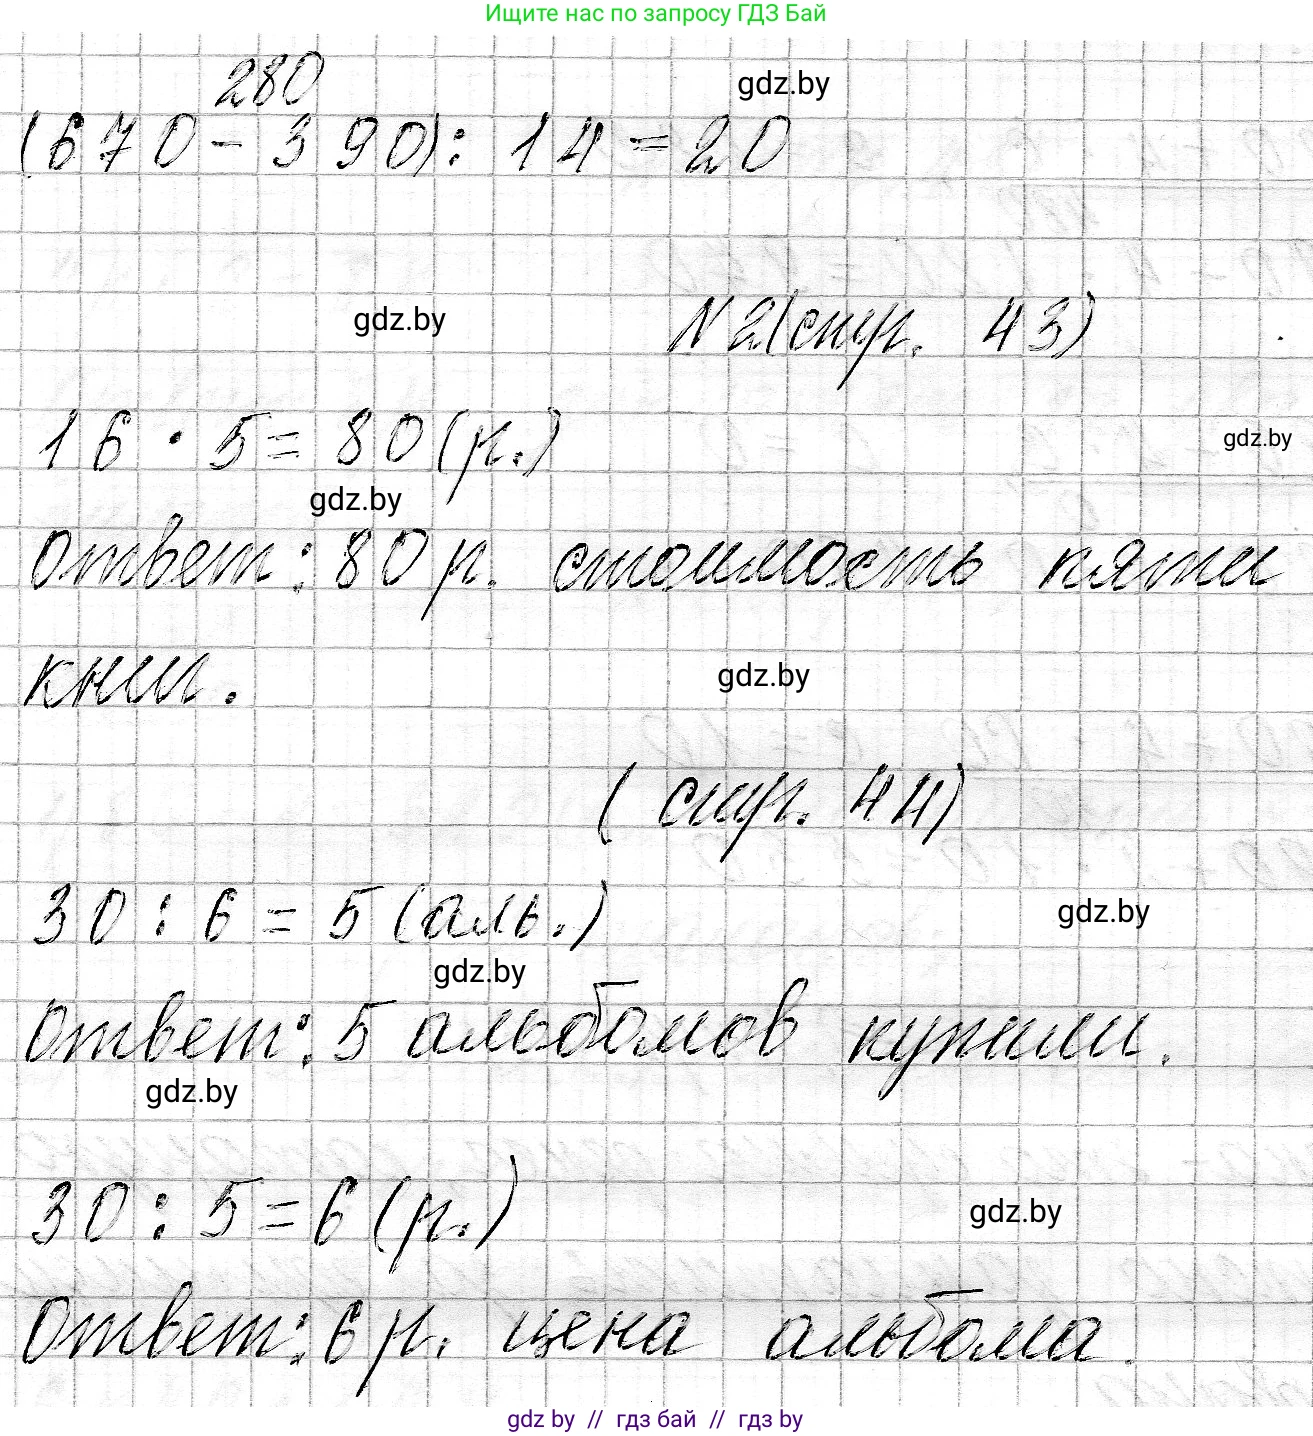 Ищите нас по запросу ГДЗ Бай
280
gdz.by
(670 - 390) : 14 = 20
gdz.by
N2(стр. 43)
16 · 5 = 80 (р.)
gdz.by
gdz.by
ответ: 80 р. стоимость пяти
книг.
gdz.by
(стр. 44)
30 : 6 = 5 (аль.)
gdz.by
gdz.by
ответ: 5 альбомов купили.
gdz.by
30 : 5 = 6 (р.)
gdz.by
ответ: 6 р. цена альбома.
gdz by // гдз бай // гдз by